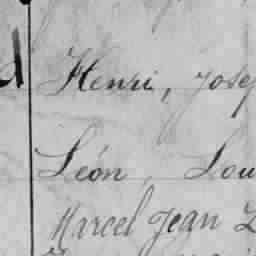 Henri, Josep
Léon, Lou
Marcel Jean L